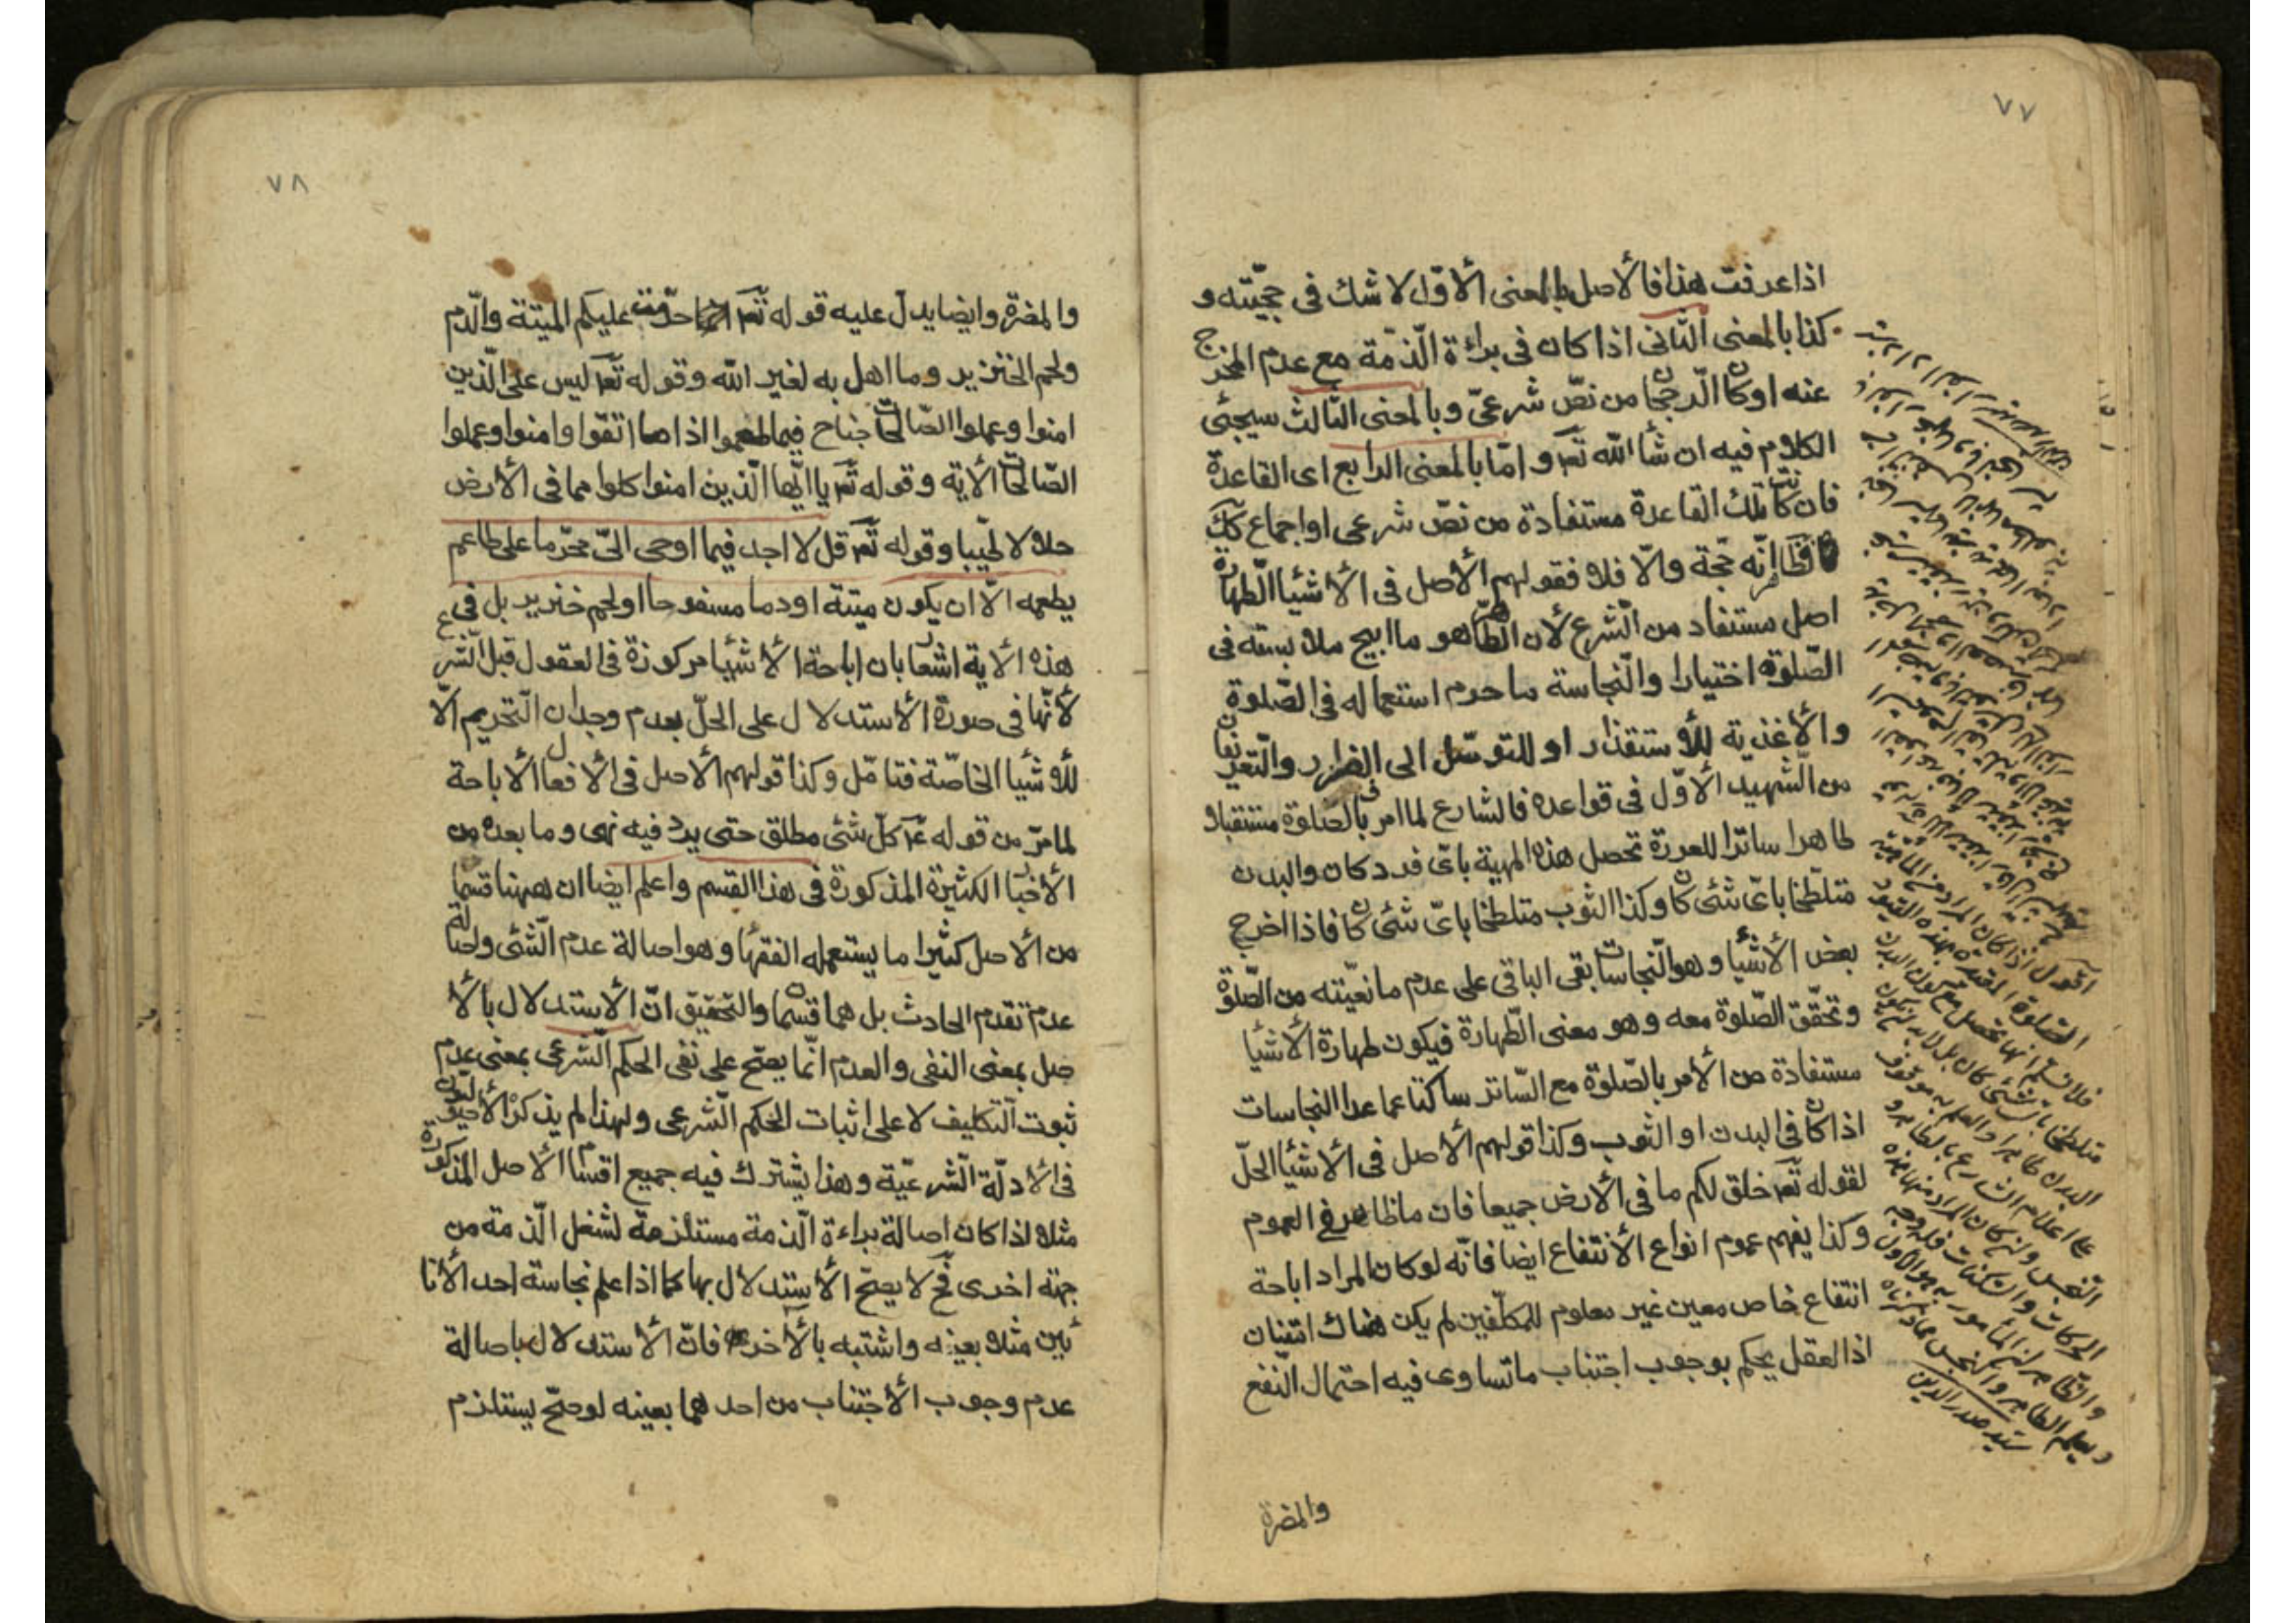 ٧٧
اذا عرفت هذا فالأصل بالمعنى الأوّل لا شك في حجّيته و
كذا بالمعنى الثاني اذا كان في براءة الذّمة مع عدم المخرج
عنه او كان الرجحان من نصّ شرعيّ وبالمعنى الثالث سيجئ
الكلام فيه ان شأ الله تعـ واما بالمعنى الرابع اى القاعدة
فان كانت تلك القاعدة مستفادة من نصّ شرعى او اجماع كك
فظاهر انّه حجّة والّا فلا فقولهم الأصل في الأشيا الطّهارة
اصل مستفاد من الشّرع لأن الطّاهر هو ما ابيح ملابسته في
الصّلوة اختيارا والنّجاسة ما حرم استعماله في الصّلوة
والأغذية للأستقذار او للتوصّل الى الفرار والتعريفان
من الشّهيد الأوّل في قواعده فالشارع لما امر بالصّلوة مستقبلا
طاهرا ساترا للعورة تحصل هذه المهية باىّ فرد كان والبدن
متلطّخا باىّ شئى كان وكذا الثوب متلطخا باىّ شئى كان فاذا اخرج
بعض الأشيأ وهو النّجاسات بقى الباقى على عدم مانعيّته من الصّلوة
وتحقّق الصّلوة معه وهو معنى الطّهارة فيكون طهارة الأشيأ
مستفادة من الأمر بالصّلوة مع السّاتر ساكتا عما عدا النجاسات
اذا كان في البدن او الثوب وكذا قولهم الأصل في الأشيأ الحلّ
لقوله تعـ خلق لكم ما في الأرض جميعا فان ما ظاهر في العموم
وكذا يفهم عموم انواع الأنتفاع ايضا فانّه لو كان المراد اباحة
انتفاع خاص معين غير معلوم للمكلّفين لم يكن هناك امتنان
اذ العقل يحكم بوجوب اجتناب ما تساوى فيه احتمال النّفع
والمضرة
اقول اذا كان المراد من الماهية
الصّلوة المقيدة بهذه القيود
فلا نسلم انها تحصل مع كون البدن
متلطخا باىّ شئى كان بل لا بد ان يكون
البدن طاهرا والعلم به موقوف
على اعلام الشارع بالطاهر و
النّجس وان كان المراد منها هذه
الحركات والسكنات فلا وجه
والظاهر ان المأمور به هو الاول
ويعلم الطاهر والنجس مما ذكرناه
سيّد صدر الدين
٧٨
والمضرة وايضا يدل عليه قوله تعـ انما حرّمت عليكم الميتة والّدم
ولحم الخنزير وما اهل به لغير الله وقوله تعـ ليس على الّذين
امنوا وعملوا الصّالحات جناح فيما طعموا اذا ما اتقوا وامنوا وعملوا
الصّالحات الأية وقوله تعـ يا ايّها الّذين امنوا كلوا مما في الأرض
حلالا طيّبا وقوله تعـ قل لا اجد فيما اوحى الىّ محرّما على طاعم
يطعمه الّا ان يكون ميتة او دما مسفوحا او لحم خنزير بل في
هذه الأية اشعار بان اباحة الأشيا مركوزة في العقول قبل الشرع
لأنّها في صورة الأستدلال على الحلّ بعدم وجدان التّحريم الّا
للأشيا الخاصّة فتامّل وكذا قولهم الأصل في الأفعال الأباحة
لما مرّ من قوله عـ كلّ شئى مطلق حتى يرد فيه نهى وما بعده من
الأخبار الكثيرة المذكورة في هذا القسم واعلم ايضا ان ههنا قسما
من الأصل كثيرا ما يستعمله الفقهأ وهو اصالة عدم الّشئى واصالة
عدم تقدم الحادث بل هما قسمان والتحقيق انّ الأستدلال بالأ
صل بمعنى النفى والعدم انّما يصحّ على نفى الحكم الشّرعى بمعنى عدم
ثبوت التّكليف لا على اثبات الحكم الشّرعى ولهذا لم يذكره الأصوليون
في الأدلّة الشّرعيّة وهذا يشترك فيه جميع اقسام الأصل المذكورة
مثلا اذا كان اصالة براءة الذّمة مستلزمة لشغل الذّمة من
جهة اخرى فح لا يصحّ الأستدلال بها كما اذا علم نجاسة احد الأنا
ئين مثلا بعينه واشتبه بالأخر فانّ الأستدلال باصالة
عدم وجوب الأجتناب من احدهما بعينه لو صحّ يستلزم